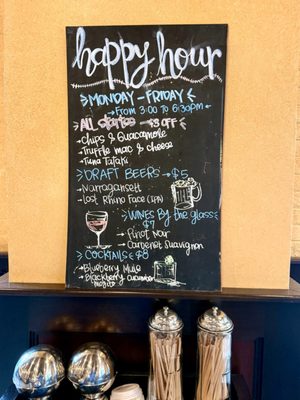 happy hour
MONDAY - FRIDAY
→From 3:00 to 6:30PM
All $3 OFF
→Chips & Guacamole
→Truffle mac & cheese
→Tuna Tataki
DRAFT BEERS →$5
→Narragansett
→Lost Rhino Face (IPA)
WINES By the glass
$7
→Pinot Noir
→Cabernet Sauvignon
COCKTAILS $8
→Blueberry Mule
→Blackberry cucumber
mojito